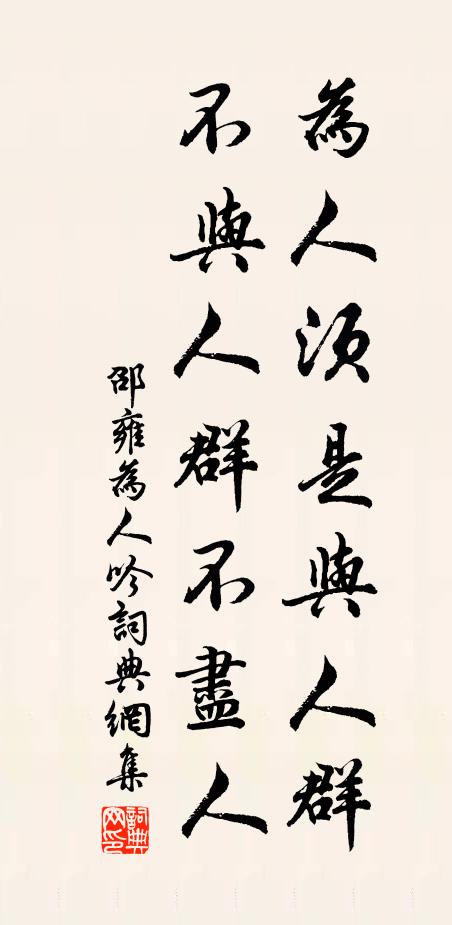 為人須是與人群
不與人群不盡人
邵雍為人吟詞典網集
詞典網印